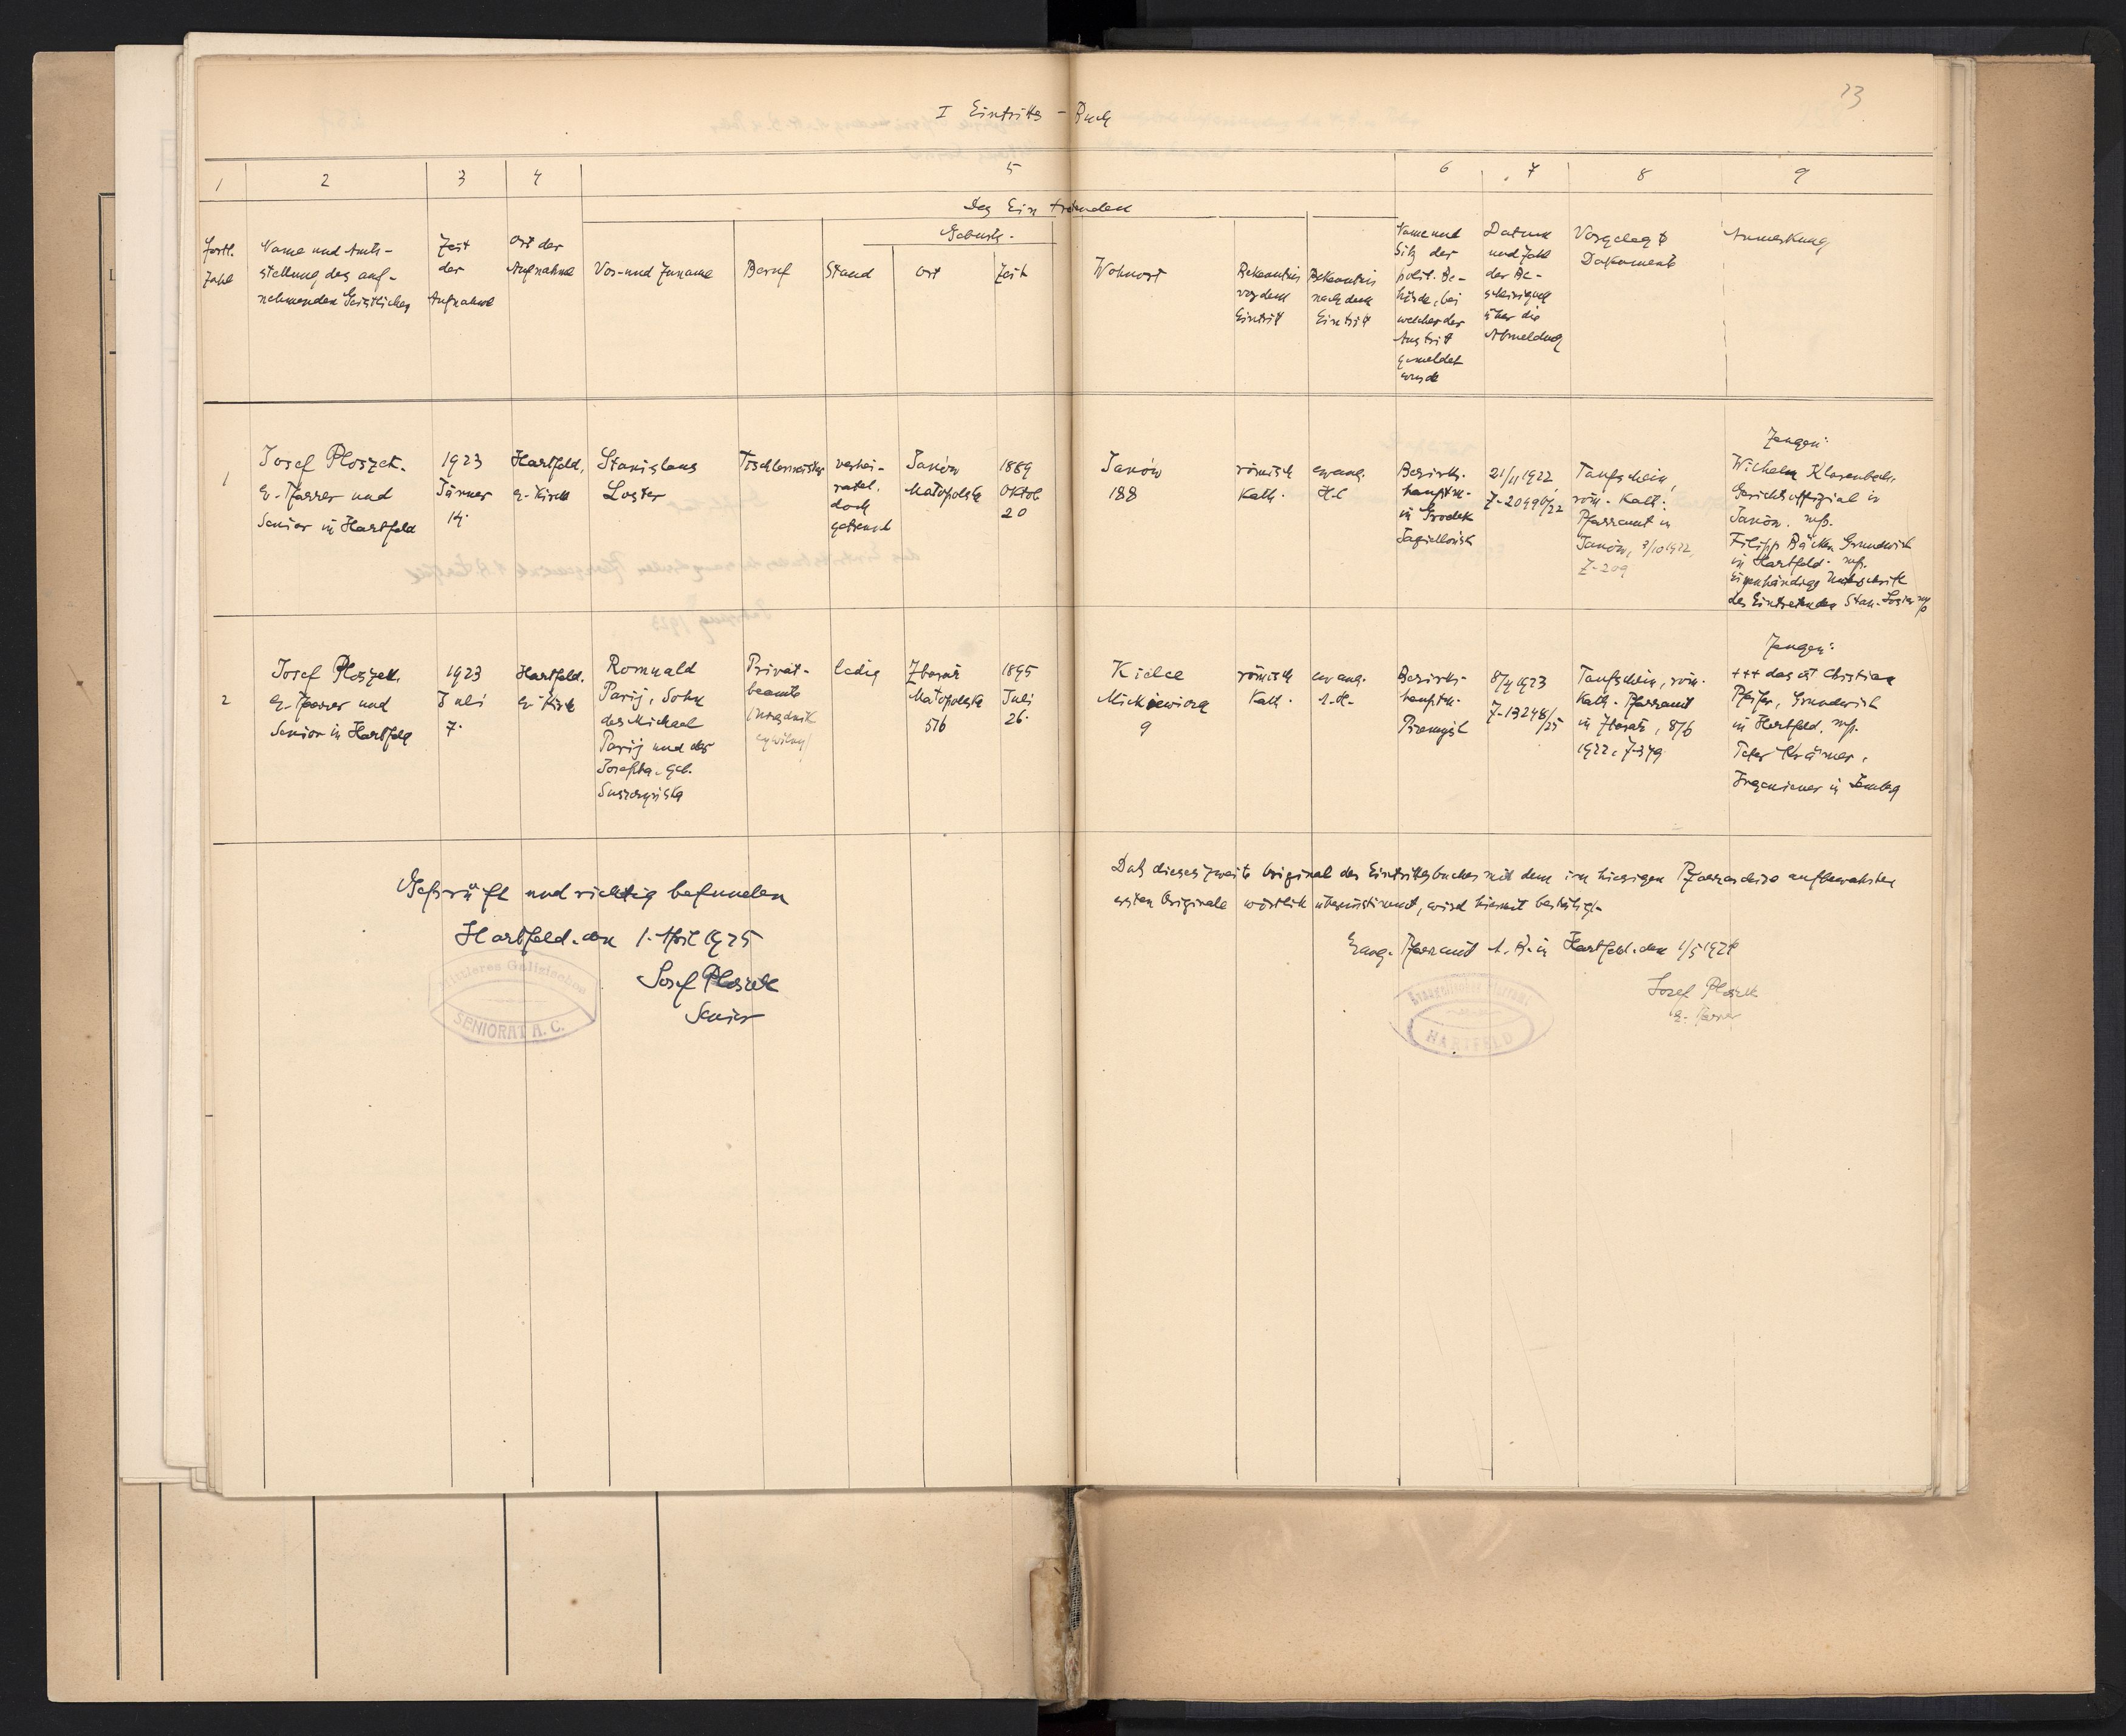 23
I Eintritts - Buch
1 2 3 4 5 6 7 8 9
Des Eintretenden
Geburts-
Fortl.
Zahl
Name und Amts-
stellung des auf-
nehmenden Geistlichen
Zeit
der
Aufnahme
Ort der
Aufnahme
Vor- und Zuname
Beruf
Stand
Ort
Zeit
Wohnort
Bekenntnis
vor dem
Eintritt
Bekenntnis
nach dem
Eintritt
Name und
Sitz der
polit. Be-
hörde, bei
welcher der
Austritt
gemeldet
wurde
Datum
und Zahl
der Be-
scheinigung
über die
Abmeldung
Vorgelegte
Dokumente
Anmerkung
1
Josef Ploszek.
Ev. Pfarrer und
Senior in Hartfeld
1923
Jänner
14.
Hartfeld,
ev. Kirche
Stanislaus
Loster
Tischlermeister
verhei-
ratet.
doch
getrennt
Janów
Małopolska
1889
Oktob
20
Janów
188
römisch
Kath.
evang.
H.C
Bezirks-
hauptm.
in Grodek
Jagielloński
21/11 1922
Z-20996/22
Taufschein,
röm. Kath.
Pfarramt in
Janów, 7/10 1922,
Z-209
Zeugen:
Wilhelm Klarenbach,
Gerichtsoffizial in
Janów. mp.
Filipp Bäcker Grundwirt
in Hartfeld. mp.
Eigenhändige Unterschrift
des Eintretenden Stan. Loster mp
2
Josef Ploszek
Ev. Pfarrer und
Senior in Hartfeld
1923
Juli
7.
Hartfeld.
ev. Kirche
Romuald
Parij, Sohn
des Michael
Parij und der
Josefha. geb.
Privat-
beamte
(Urzędnik
cywilny)
ledig
Zbaraż
Małopolska
516
1895
Juli
26.
Kielce
Mickiewicza
9
römisch
Kath.
evang.
A.-B.
Bezirks-
hauptm.
Przemyśl
8/4 1923
Z-13248/25
Taufschein, röm.
Kath. Pfarramt
in Zbaraż, 8/6
1922, Z-379
Zeugen:
+++ das ist Christian
Pfeifer, Grundwirt
in Hartfeld. mp.
Peter Krämer,
Ingenieur in Lemberg
Geprüft und richtig befunden
Hartfeld. am 1. April 1925
Josef Ploszek
Senior
Mittleres Galizisches
SENIORAT A. C.
Daß dieses zweite Original des Eintrittsbuches mit dem im hiesigen Pfarrarchive aufbewahrten
ersten Originale wörtlich übereinstimmt, wird hiermit bestätigt.
Evang. Pfarramt A. B. in Hartfeld. den 1/5 1924
Josef Ploszek
ev. Pfarrer
Evangelisches Pfarramt
HARTFELD